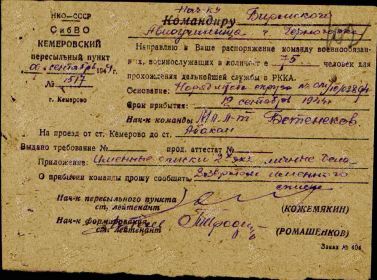 НКО—СССР
СибВО
КЕМЕРОВСКИЙ
пересыльный пункт
сентября 194 г.
№ 1517
г. Кемерово
Нач-ку Бирмского
Командиру
Авиаучилища г. Черногорка
Направляю в Ваше распоряжение команду военнообязанных, военнослужащих в количестве 75 человек для
прохождения дальнейшей службы в РККА.
Основание:
Срок прибытия: 12 сентября 1944г
Нач-к команды
На проезд от ст. Кемерово до ст. Абакан
Выдано требование № прод. аттестат №
Приложение: Именные списки 2 экз.
О прибытии команды прошу сообщить возвратом именного
списка
Нач-к пересыльного пункта
ст. лейтенант
(КОЖЕМЯКИН)
Нач-к формирования
ст. лейтенант
(РОМАШЕНКОВ)
Заказ № 404